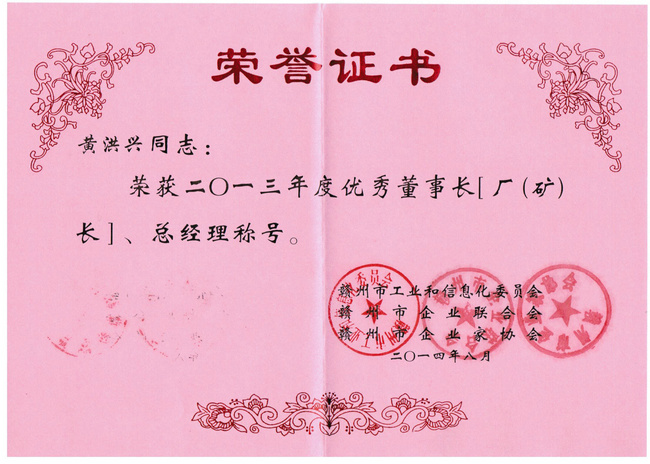 荣誉证书
黄洪兴同志：
荣获二〇一三年度优秀董事长[厂(矿)
长]、总经理称号。
赣州市工业和信息化委员会
赣州市企业联合会
赣州市企业家协会
二〇一四年八月